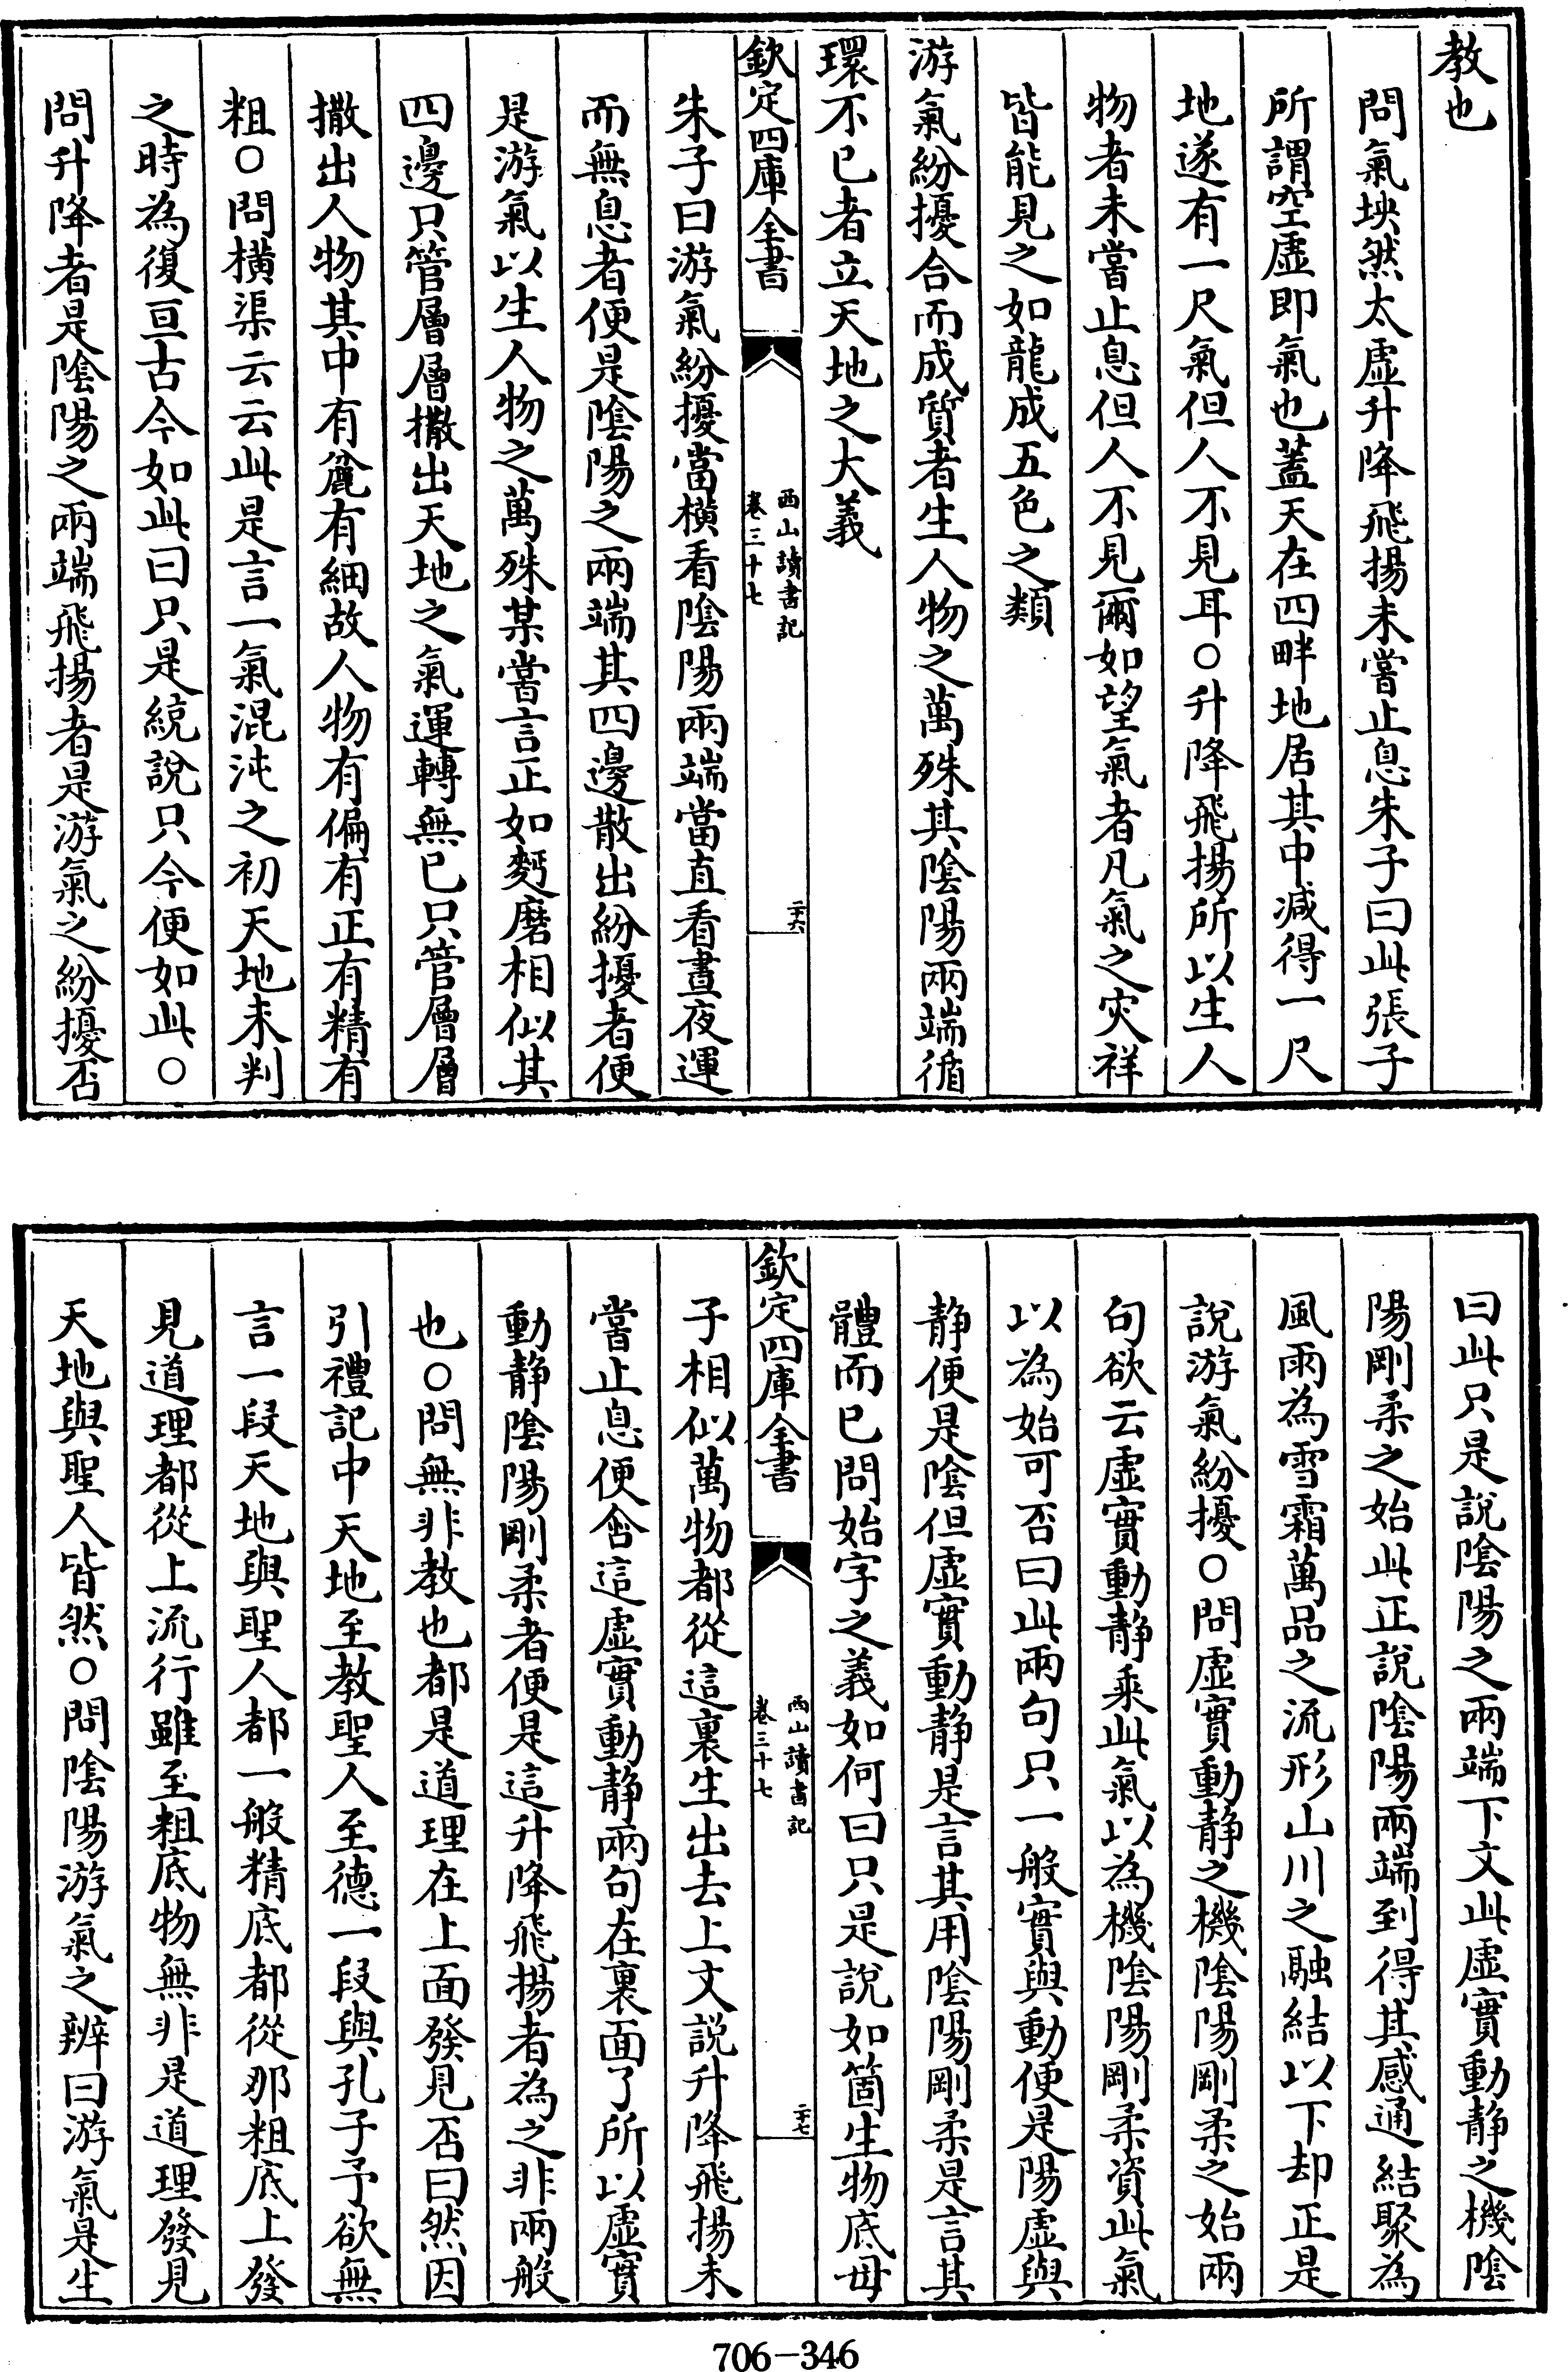 教也
問氣坱然太虛升降飛揚未嘗止息朱子曰此張子
所謂空虛即氣也蓋天在四畔地居其中減得一尺
地遂有一尺氣但人不見耳○升降飛揚所以生人
物者未嘗止息但人不見爾如望氣者凡氣之灾祥
皆能見之如龍成五色之類
游氣紛擾合而成質者生人物之萬殊其陰陽兩端循
環不已者立天地之大義
欽定四庫全書
西山讀書記
卷三十七
二十六
朱子曰游氣紛擾當橫看陰陽兩端當直看晝夜運
而無息者便是陰陽之兩端其四邊散出紛擾者便
是游氣以生人物之萬殊某嘗言正如麪磨相似其
四邊只管層層撒出天地之氣運轉無已只管層層
撒出人物其中有麄有細故人物有偏有正有精有
粗○問橫渠云云此是言一氣混沌之初天地未判
之時為復亘古今如此曰只是統說只今便如此○
問升降者是陰陽之兩端飛揚者是游氣之紛擾否
曰此只是說陰陽之兩端下文此虛實動靜之機陰
陽剛柔之始此正說陰陽兩端到得其感通結聚為
風雨為雪霜萬品之流形山川之融結以下却正是
說游氣紛擾○問虛實動靜之機陰陽剛柔之始兩
句欲云虛實動靜乘此氣以為機陰陽剛柔資此氣
以為始可否曰此兩句只一般實與動便是陽虛與
靜便是陰但虛實動靜是言其用陰陽剛柔是言其
體而已問始字之義如何曰只是說如箇生物底母
欽定四庫全書
西山讀書記
卷三十七
二十七
子相似萬物都從這裏生出去上文說升降飛揚未
嘗止息便含這虛實動靜兩句在裏面了所以虛實
動靜陰陽剛柔者便是這升降飛揚者為之非兩般
也○問無非教也都是道理在上面發見否曰然因
引禮記中天地至教聖人至德一段與孔子予欲無
言一段天地與聖人都一般精底都從那粗底上發
見道理都從上流行雖至粗底物無非是道理發見
天地與聖人皆然○問陰陽游氣之辨曰游氣是生
706-346